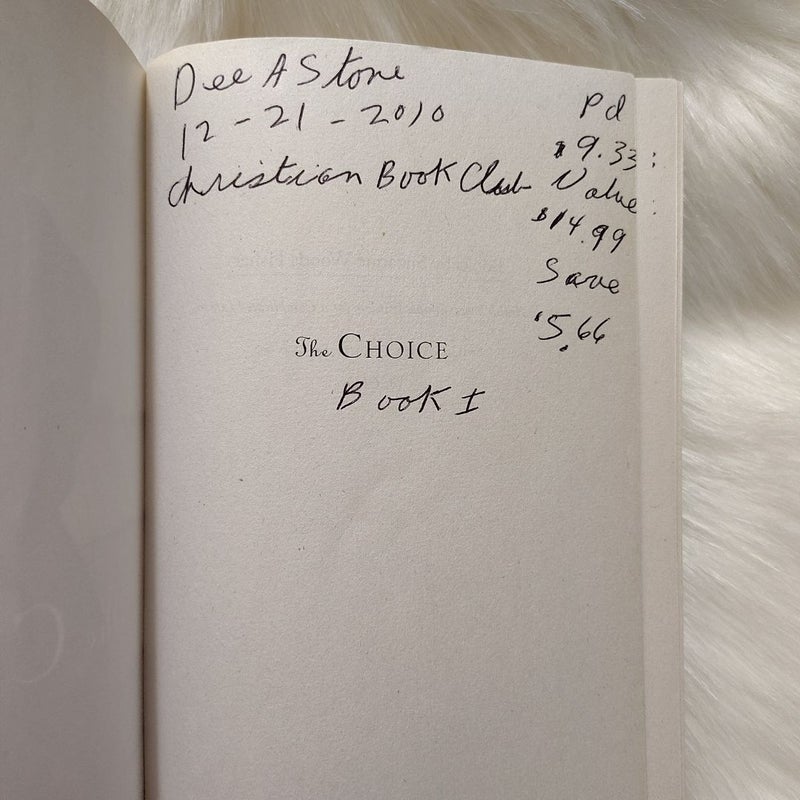 Dee A Stone
12-21-2010
Christian Book Club
Pd
$9.33
Value
$14.99
Save
$5.66
The CHOICE
Book I